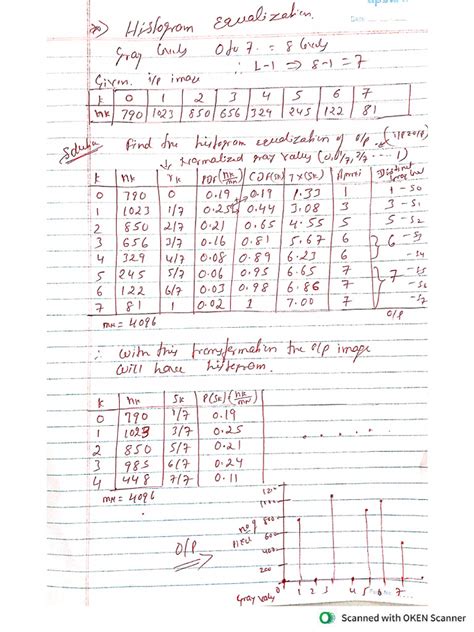 Histogram Equalization.
Gray levels 0 to 7 = 8 levels
∴ L-1 ⇒ 8-1 = 7
Given i/p image
k 0 1 2 3 4 5 6 7
nk 790 1023 850 656 329 245 122 81
Find the histogram equalization of o/p
↓ Normalized gray values (0, 1/7, 2/7 ---- 1)
k nk rk PDF (nk/mn) CDF (Sk) 7 x (Sk) Distinct
0 790 0 0.19 0.19 1.33 1 1 - S0
1 1023 1/7 0.25 0.44 3.08 3 3 - S1
2 850 2/7 0.21 0.65 4.55 5 5 - S2
3 656 3/7 0.16 0.81 5.67 6 } 6 - S3
4 329 4/7 0.08 0.89 6.23 6 - S4
5 245 5/7 0.06 0.95 6.65 7 } 7 - S5
6 122 6/7 0.03 0.98 6.86 7 - S6
7 81 1 0.02 1 7.00 7 - S7
mn = 4096 O/P
∴ With this transformation the o/p image
will have histogram.
k nk Sk P(Sk) (nk/mn)
0 790 1/7 0.19
1 1023 3/7 0.25
2 850 5/7 0.21
3 985 6/7 0.24
4 448 7/7 0.11
mn = 4096
O/P
no of
1000
800
600
400
200
Gray val 0 1 2 3 4 5 6 7
Scanned with OKEN Scanner